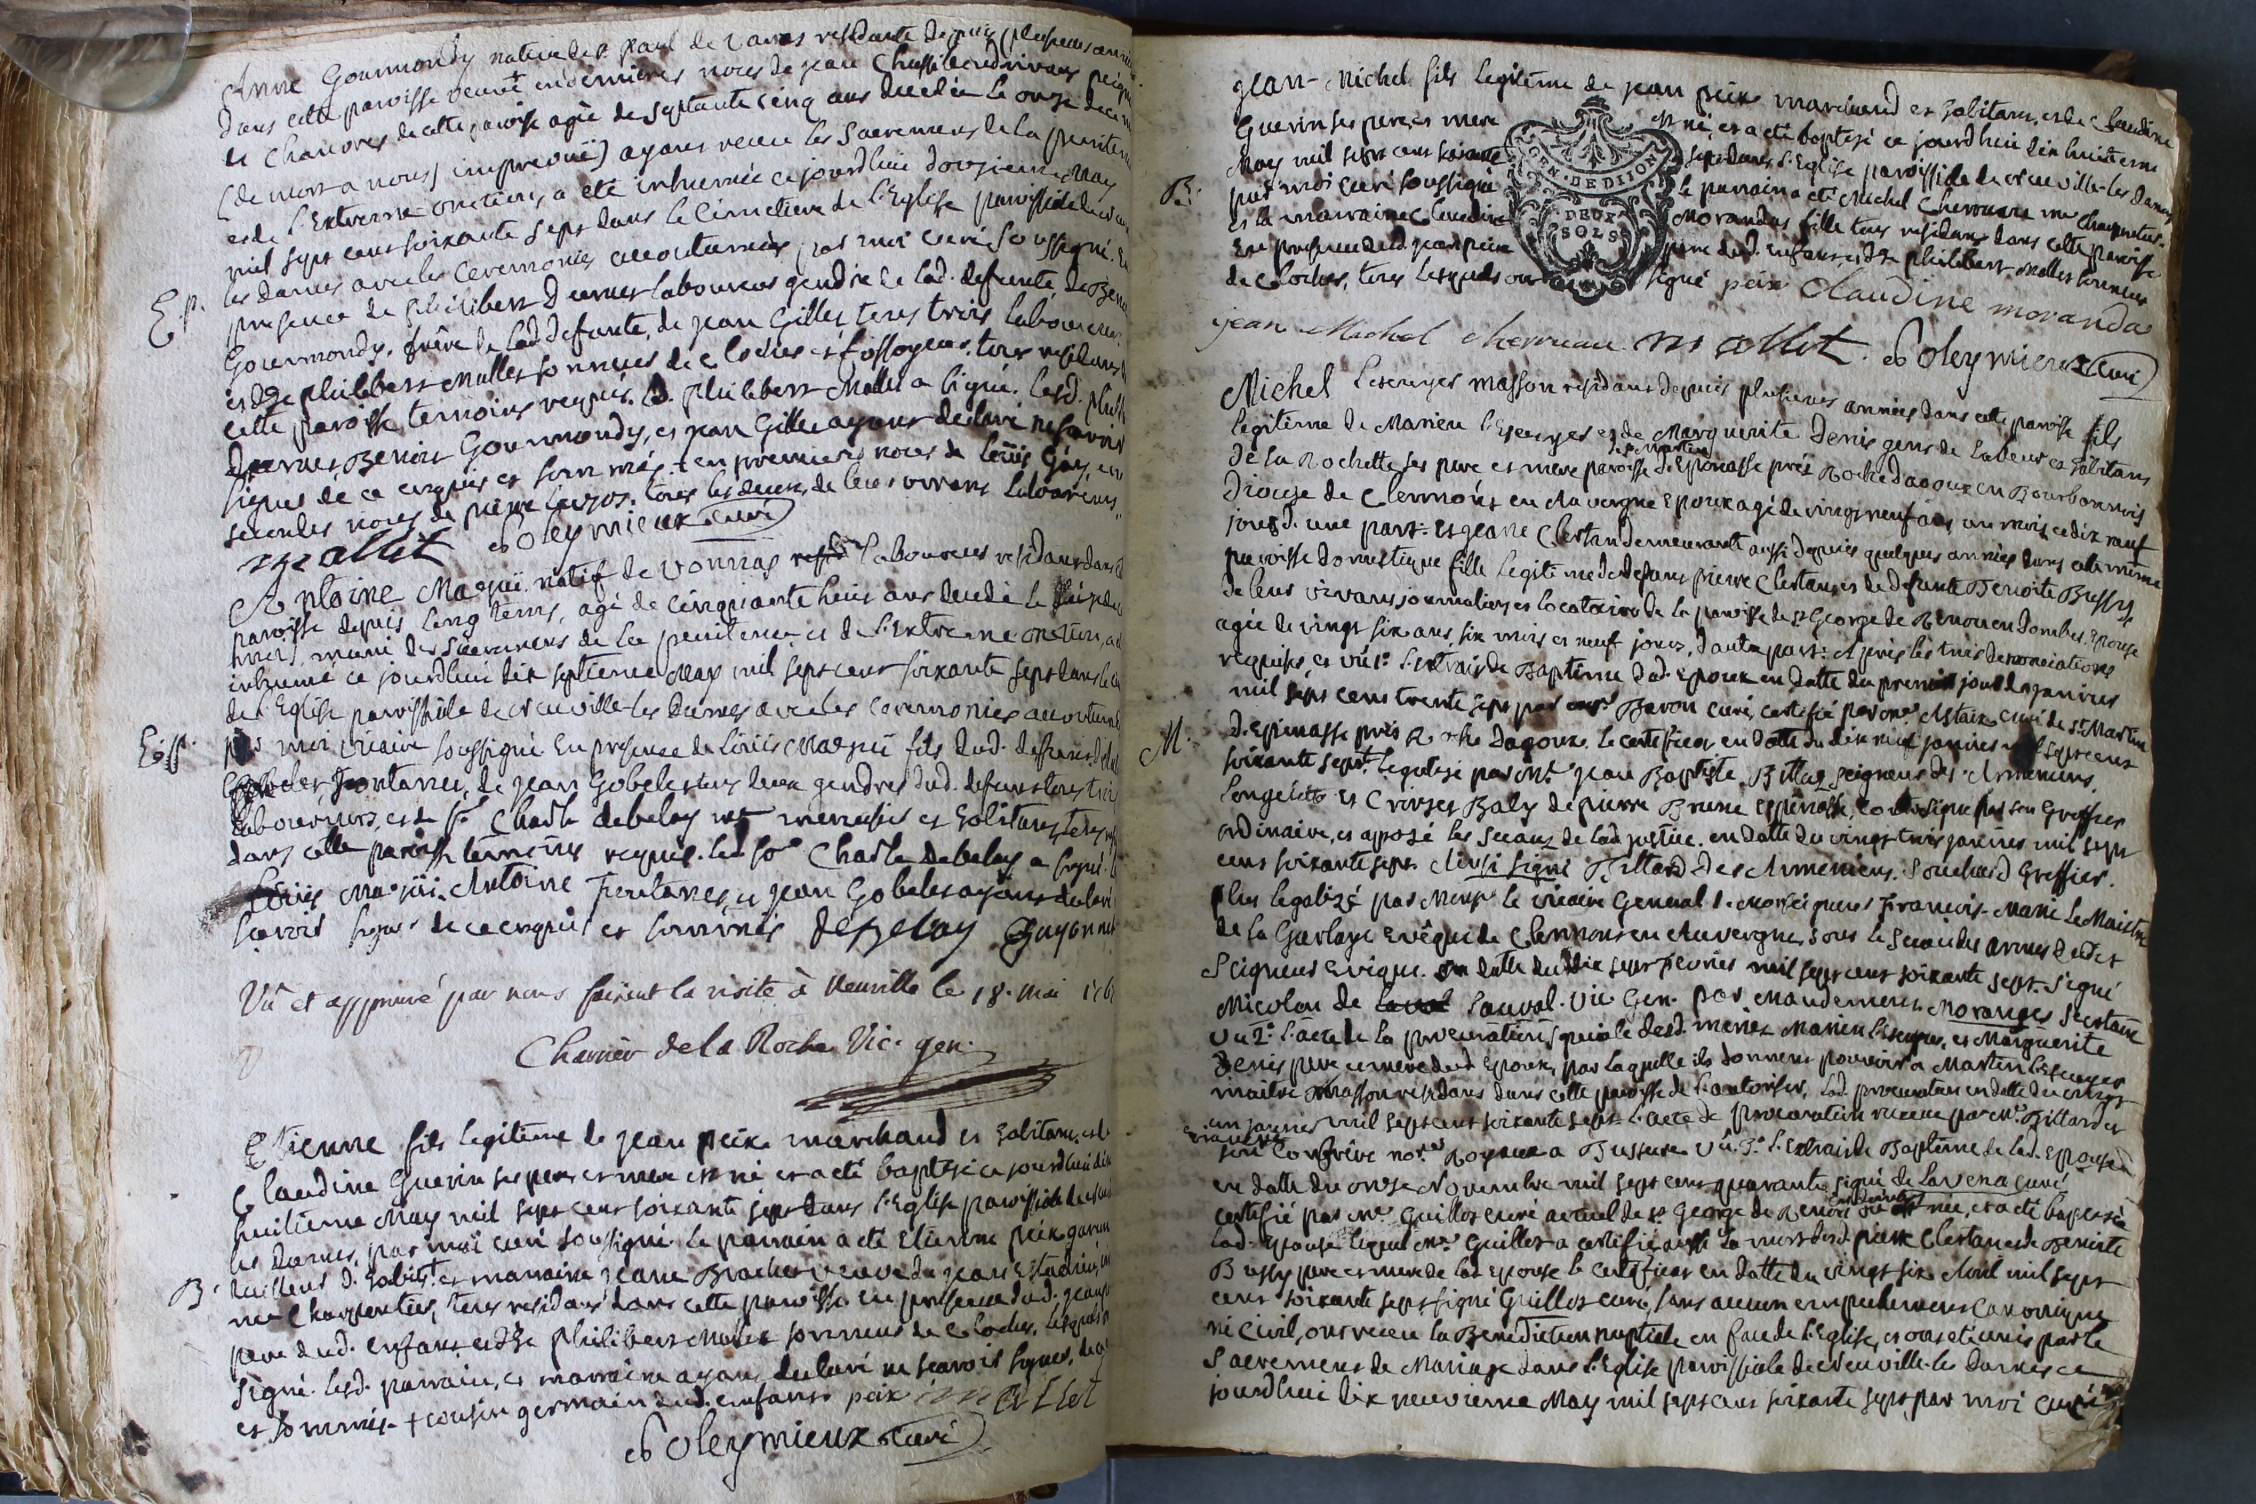 Anne Gourmondy native de St paul de Varas residante depuis plusieurs ann
dans cette paroisse veuve + en dernieres noces de jean Chuffi
de Chanvres de cette paroisse agée de septante cinq ans decedée le onze de ce m
(de mort a nous imprevuë) ayant receu les Sacremens de la penitence
et de l'Extreme onction, a été inhumée ce jourdhui douzieme May
mil sept cent soixante sept dans le Cimetiere de l'Eglise paroissiale de
Ep.
les dames avec les Ceremonies accoutumées par moi curé soussigné. En
presence de philibert laboureur gendre de lad. defunte, de Benoit
Gourmondy, frère de lad. defunte, de jean Gilles, tous trois laboureurs
et de philibert Mallet sonneur de cloches et fossoyeur, tous residans
cette paroisse temoins requis. le d. philibert Mallet a signé. les d. philib
Benoit Gourmondy, et jean Gilles ayans declaré ne savoir
signer de ce enquis et sommés + en premieres noces de loüis Gay, en
secondes noces de pierre tous les deux, de leur vivant laboureurs,
mallet Poleymieux curé
Antoine Maquï natif de Vonnas laboureur residant dans
paroisse depuis long tems, agé de cinquante huit ans decedé le
muni des Sacremens de la penitence et de l'Extreme onction, a
inhumé ce jourdhui dix septieme May mil sept cent soixante sept dans le
de l'Eglise paroissiale de Neuville-les Dames avec les ceremonies accoutum
Ep.
par moi vicaire soussigné En presence de loüis Maquï fils dud. defunt
Fontanes, de jean Gobelet tous deux gendres dud. defunt tous trois
laboureurs, et de Sr Charle debelay me menuisier et habitans, tous
dans cette paroisse temoins requis. led. Sr Charle Debelay a signé.
loüis Maquï, Antoine Fontanes, et jean Gobelet ayant declaré
scavoir signer de ce enquis et sommés debelay Guyonnet
Vu et approuvé par nous faisant la visite à Neuville le 18. mai 176
Charrier de la Roche Vic. gen.
Etienne fils legitime de jean peix marchand et habitant, et de
Claudine Guerin ses pere et mere est né et a été baptisé ce jourdhui dix
huitieme May mil sept cent soixante sept dans l'Eglise paroissiale de
les Dames, par moi curé soussigné le parrain a été Etienne peix garcon
B.
tailleur d'habits + et marraine jeane Brochet veuve de jean
me Charpentier, tous residans dans cette paroisse en presence dud. jean
pere dud. enfant et de philibert Mallet sonneur de cloches, lesquels
signé. lesd. parrain, et marraine ayans declaré ne scavoir signer, de
et sommés + cousin germain dud. enfant peix mallet
Poleymieux curé
jean-Michel fils legitime de jean peix marchand et habitans, et de Claudine
Guerin ses pere, et mere est né, et a été baptisé ce jourdhui dix huitieme
May mil sept cent soixante sept dans l'Eglise paroissiale de Neuville-les Dames
B.
par moi curé soussigné le parrain a été Michel Cherveau me charpentier
et la marraine Claudine Morandas fille tous residans dans cette paroisse
En presence dud. jean peix pere dud. enfant, et de philibert Mallet sonneur
de cloches, tous lesquels ont signé peix Claudine moranda
GEN. DE DIJON
DEUX
SOLS
jean Michel cherveau mallet. Poleymieux curé
Michel Lescuyer masson residant depuis plusieurs années dans cette paroisse fils
legitime de Marien Lescuyer et de Marguerite Denis gens de labeur et habitans
de la Rochette ses pere et mere paroisse de St Martin d'Epinasse prés Roche dagoux en Bourbonnois
Diocese de Clermont en Auvergne Epoux agé de vingt neuf ans, un mois, et dix neuf
jours d. une part: et jeane Clertan demeurante aussi depuis quelques années dans cette même
paroisse domestique fille legitime de defunt pierre Clertan, et de defunte Benoite Bussy
de leur vivant journaliers et locataires de la paroisse de St George de Renon en Dombes. Epouse
agée de vingt six ans six mois et neuf jours, d'autre part: Aprés les trois denonciations
requises, et vû 1° l'extrait de Baptême dud. Epoux en datte du premier jour de janvier
mil sept cens trente sept par Baron curé, certifié par Mr Astaix curé de St Martin
M.
d'Epinasse prés Roche dagoux. le certificat en datte du dix neuf janvier mil sept cent
soixante sept. legalisé par Mr jean Baptiste Billard Seigneur des Armeniens,
et Crivses Baly de pierre Brune espinasse, son Greffier
ordinaire, et aposé les Sceaux de lad. justice. en datte du vingt trois janvier mil sept
cent soixante sept Ainsi signé Billard Des Armeniens. Souchard Greffier.
plus legalizé par Monsr le vicaire General de Monseigneur François-Marie Le Maistre
de la Garlaye Evêque de Clermont en Auvergne, sous le Sceau des armes dudit
Seigneur Evêque. en datte du dix sept fevrier mil sept cent soixante sept. Signé
Micolon de laval Lauval. Vic. Gen. par Mandement Moranges Secretaire
Vu 2° l'acte de la procuration speciale desd. mariez Marien Lescuyer, et Marguerite
Denis pere et mere dud. Epoux, par laquelle ils donnent pouvoir a Martin Lescuyer
maitre masson residant dans cette paroisse de l'autoriser, lad. procuration en datte du vingt
un janvier mil sept cent soixante sept. l'acte de procuration receue par Mr Billard et
son Confrère nore Royaux a Bussiere Vû. 3° l'Extrait de Baptême de lad. Epouse
en datte du onze Novembre mil sept cent quarante signé de Lavena curé
certifié par Mr Guillot curé actuel de St George de Renon où est née, et a été baptisée
lad. Epouse lequel Mr Guillot a certifié aussi la mort desd. pierre Clertan et de Benoite
Bussy pere et mere de lad. epouse le certificat en datte du vingt six Avril mil sept
cent soixante sept signé Guillot curé, sans aucun empechement Canonique
ni Civil, ont receu la Benediction nuptiale en face de l'Eglise, et ont été unis par le
Sacrement de Mariage dans l'Eglise paroissiale de Neuville-les Dames ce
jourdhui dix neuvieme May mil sept cent soixante sept par moi curé